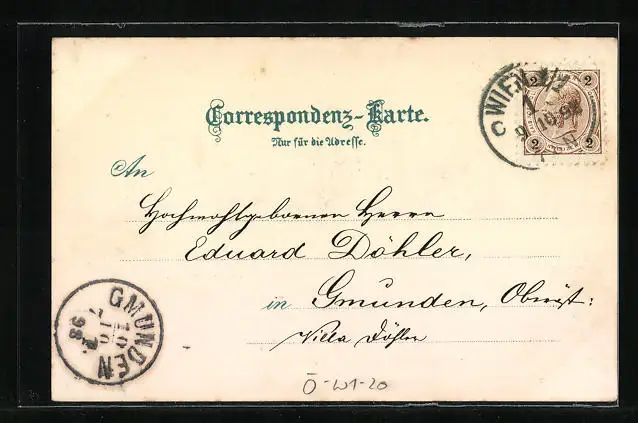 Correspondenz-Karte.
Nur für die Adresse.
An
Hochwohlgeborenen Herrn
Eduard Döhler,
in Gmunden, Oberöst:
Villa Döhler
2 2
2 2
WIEN 1/1
9.10.98
GMUNDEN
10 10
98
Ö-W1-20